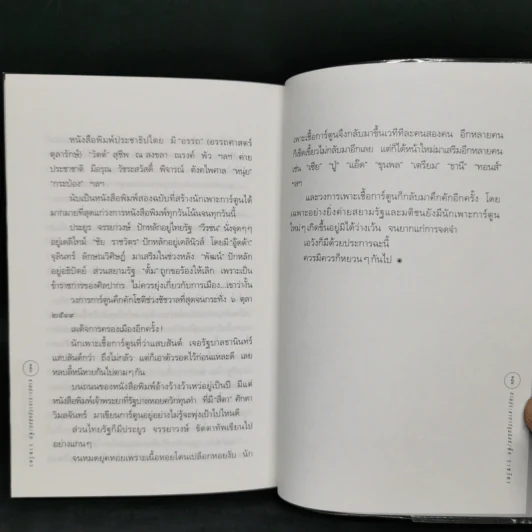 หนังสือพิมพ์ประชาธิปไตย มี "อรรถ" (อรรถศาสตร์
ตุลารักษ์) "วัตต์" สุชีพ ณ สงขลา ณรงค์ พัว ฯลฯ ค่าย
ประชาชาติ มีอรุณ วัชระสวัสดิ์ พิจารณ์ ตังคไพศาล "หนุ่ย"
"กระป๋อง" ฯลฯ
นับเป็นหนังสือพิมพ์สองฉบับที่สร้างนักเพาะการ์ตูนได้
มากมายที่สุดแก่วงการหนังสือพิมพ์ทุกวันโน้นจนทุกวันนี้
ประยูร จรรยาวงษ์ ปักหลักอยู่ไทยรัฐ "วีรชน" นั่งขุดๆ
อยู่เดลิไทม์ "ชัย ราชวัตร" ปักหลักอยู่เดลินิวส์ โดยมี "อู๊ดด้า"
จุลินทร์ ลักษณวิศิษฏ์ มาเสริมในช่วงหลัง "พัฒน์" ปักหลัก
อยู่อธิปัตย์ ส่วนสยามรัฐ "ตั้ม" ถูกขอร้องให้เลิก เพราะเป็น
ข้าราชการของศิลปากร ไม่ควรยุ่งเกี่ยวกับการเมือง...เขาว่างั้น
วงการการ์ตูนคึกคักโชติช่วงชัชวาลที่สุดจนกระทั่ง ๖ ตุลา
๒๕๑๙
เผด็จการครองเมืองอีกครั้ง!
นักเพาะเชื้อการ์ตูนที่ว่าแสบสันต์ เจอรัฐบาลธานินทร์
แสบสันต์กว่า ถึงไม่กลัว แต่ก็เอาตัวรอดไว้ก่อนแหละดี เลย
หลบลี้หนีหายกันไปตามๆ กัน
บนถนนของหนังสือพิมพ์อ้างว้างว้าเหว่อยู่เป็นปี มีแต่
หนังสือพิมพ์เจ้าพระยาที่รัฐบาลหอบควักทุนทำ ที่มี "สีดา" ศักดา
วิมลจันทร์ มาเขียนการ์ตูนอยู่อย่างไม่รู้จะพุ่งเป้าไปไหนดี
ส่วนไทยรัฐก็มีประยูร จรรยาวงษ์ ขัดตาทัพเขียนไป
อย่างแกนๆ
จนหมดยุคหอยเพราะเนื้อหอยโดนเปลือกหอยงับ นัก
เพาะเชื้อการ์ตูนจึงกลับมาขึ้นเวทีทีละคนสองคน อีกหลายคน
ก็เข็ดเขี้ยวไม่กลับมาอีกเลย แต่ก็ได้หน้าใหม่มาเสริมอีกหลายคน
เช่น "เซีย" "ปู" "แอ๊ด" "ขุนพล" "เตรียม" "ชานี" "ทอนส์"
ฯลฯ
และวงการเพาะเชื้อการ์ตูนก็กลับมาคึกคักอีกครั้ง โดย
เฉพาะอย่างยิ่งค่ายสยามรัฐและมติชนยังมีนักเพาะการ์ตูน
ใหม่ๆ เกิดขึ้นอยู่มิได้ว่างเว้น จนยากแก่การจดจำ
เอวังก็มีด้วยประการฉะนี้
ควรมิควรก็หยวนๆ กันไป